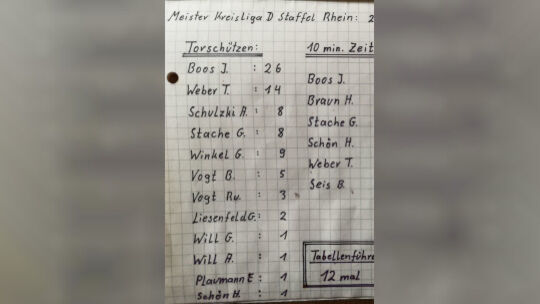 Meister Kreisliga D Staffel Rhein: 2
Torschützen:
Boos J. : 26
Weber T. : 14
Schulzki A. : 8
Stache G. : 8
Winkel G. : 9
Vogt B. : 5
Vogt Ru. : 3
Liesenfeld G. : 2
Will G. : 1
Will A. : 1
Plaumann E : 1
Schön H. : 1
10 min. Zeit
Boos J.
Braun H.
Stache G.
Schön H.
Weber T.
Seis B.
Tabellenführe
12 mal